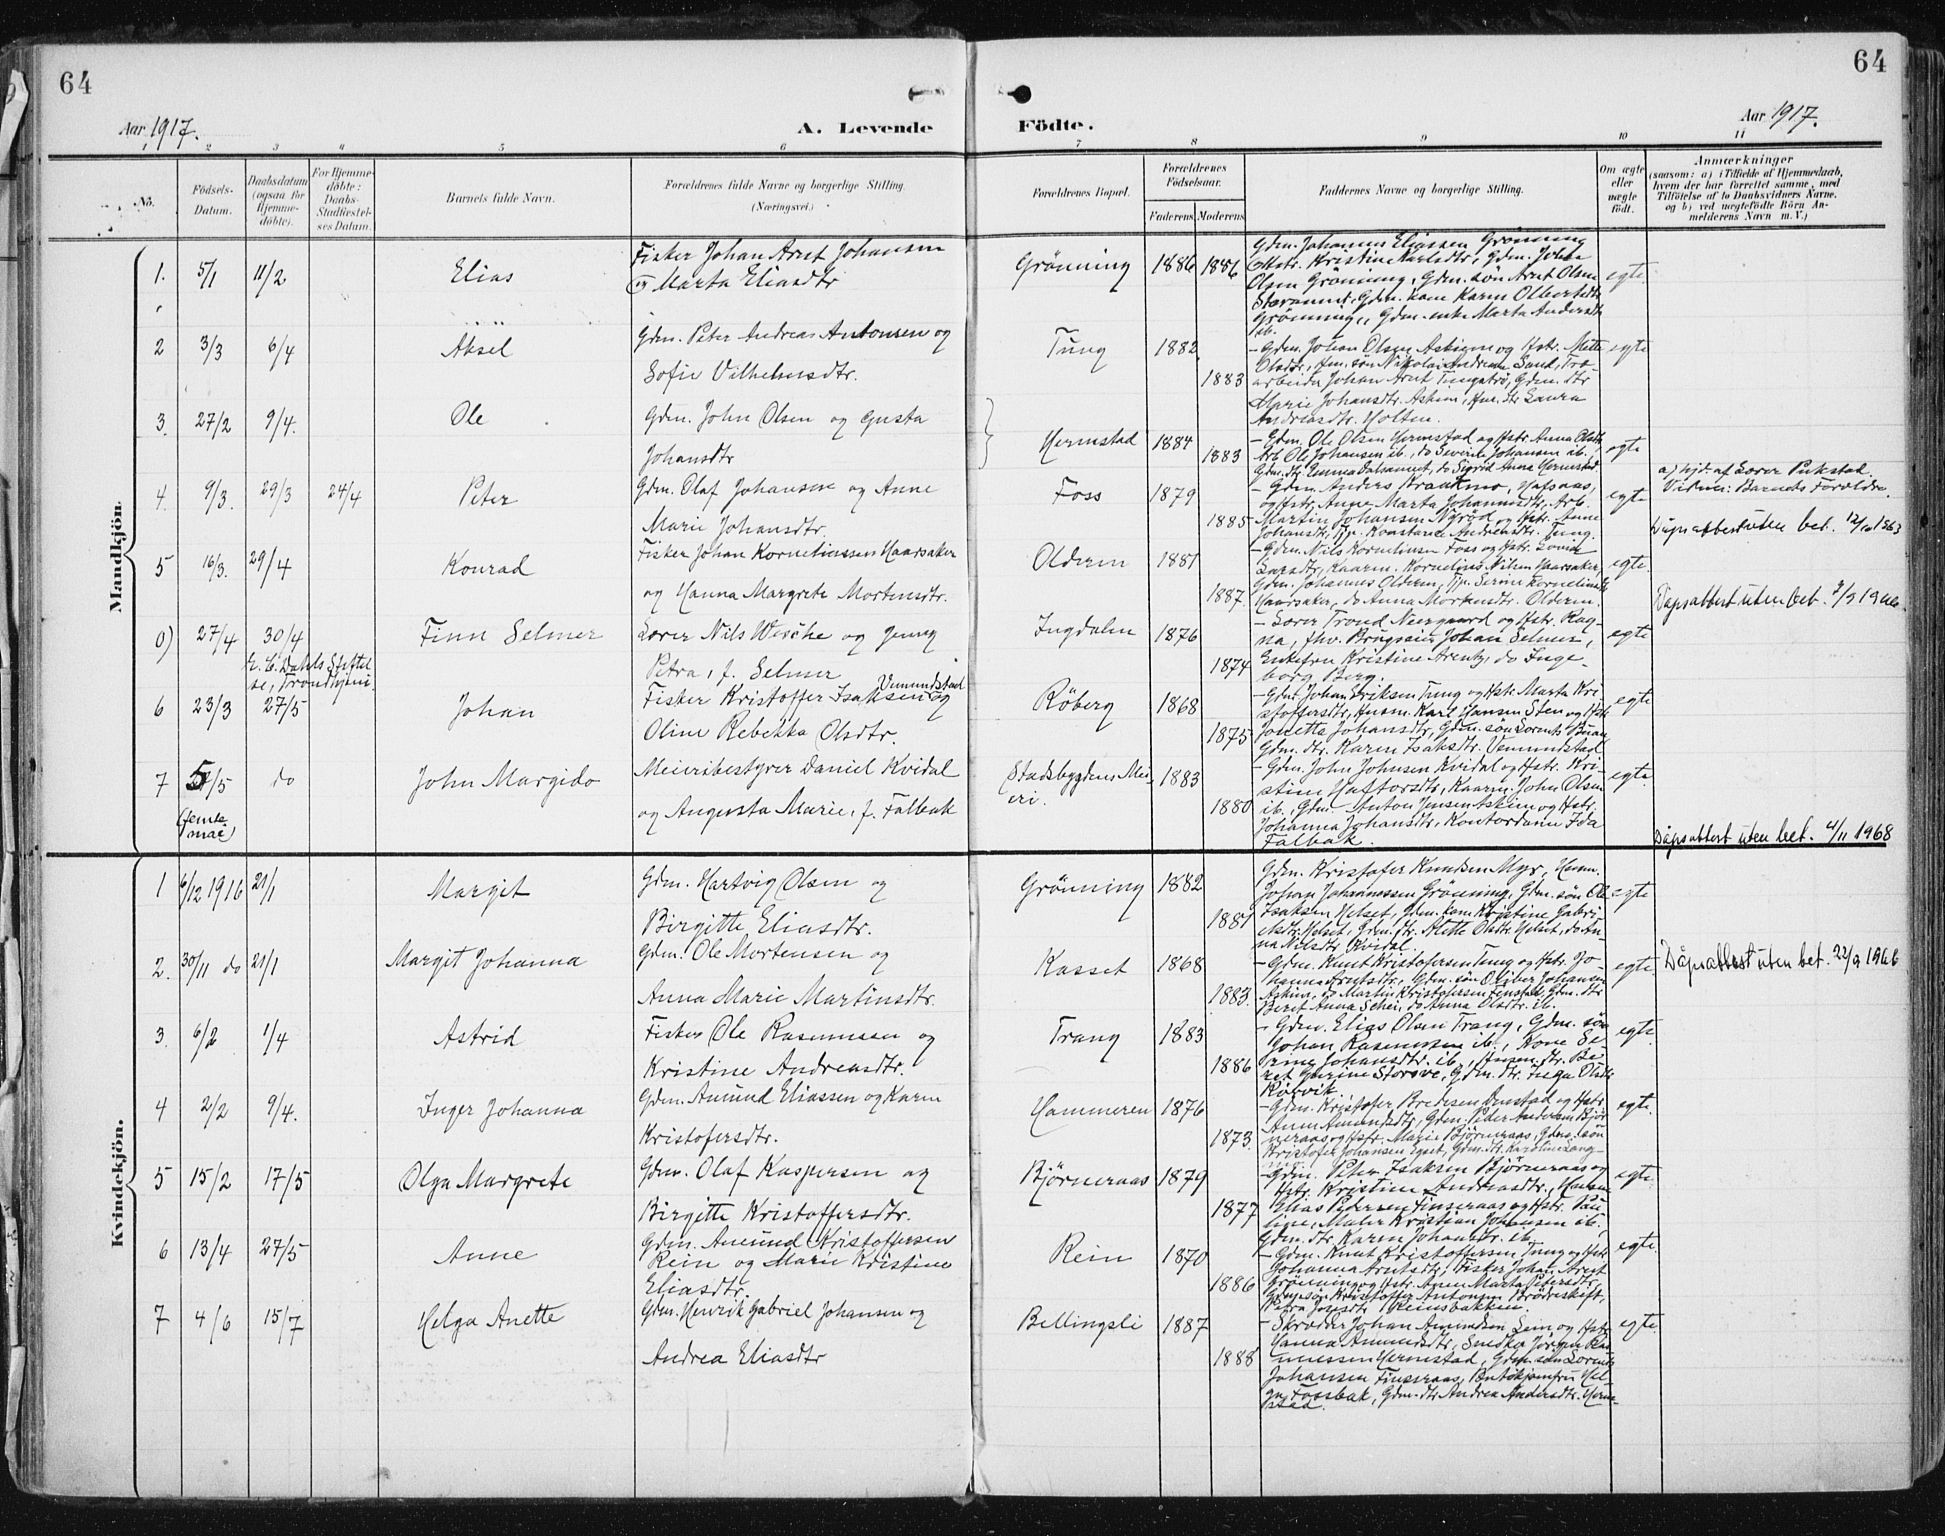 64
64
Aar 1917.
A. Levende
Födte.
Aar 1917.
1 2 3 4 5 6 7 8 9 10 11
No.
Födsels-
Datum.
Daabsdatum
(ogsaa for
Hjemme-
döbte).
For Hjemme-
döbte:
Daabs-
Stadfæstel-
ses Datum.
Barnets fulde Navn.
Forældrenes fulde Navne og borgerlige Stilling.
(Næringsvei.)
Forældrenes Bopæl.
Forældrenes
Födselsaar.
Faderens
Moderens
Faddernes Navne og borgerlige Stilling.
Om ægte
eller
uægte
födt.
Anmærkninger
(saasom: a) i Tilfælde af Hjemmedaab,
hvem der har forrettet samme, med
Tilföielse af to Daabsvidners Navne,
og b) ved uægtefödte Börn An-
melderens Navn m. V.)
Mandkjön.
1. 5/1 11/2 Elias
Fisker Johan Arnt Johansen
og Marta Eliasdtr
Grönning 1886 1886
Gdm. Johannes Eliassen Grönning
Hstr. Kristine Karlsdtr, Gdm. Johan
Olsen Grönning, Gdm. sön Arnt Olsen
Gdm. kone Karen
Grönning, Gdm. enke Marta Andersdtr
ib.
egte
2 3/3 6/4 Aksel
Gdm. Peter Andreas Antonsen og
Sofie Vilhelmsdtr.
Tung 1882 1883
- Gdm. Johan Olsen Askjem og Hstr. Mette
Olsdtr, Hm. sön Nikolai Andreas Sand,
arbeider Johan Arnt Gdm. dtr
Marie Johansdtr. Askjem, Hm. dtr Laura
Andreasdtr. Holten.
egte
3. 27/2 9/4. Ole
Gdm. John Olsen og Gusta
Johansdtr
Hermstad 1884 1883
- Gdm. Ole Olsen Hermstad og Hstr. Anna Olsdtr
Arb Ole Johansen ib., do Severin Johansen ib.,
Gdm. dtr Emma do Sigrid Anna Hermstad
egte
4. 9/3. 29/3 24/4 Peter
Gdm. Olaf Johansen og Anne
Marie Johansdtr.
Foss 1879 1885
- Gdm. Anders Hafsaas,
og Hstr. Anne Marta Johannesdtr, Arb.
Martin Johansen Nyrød og Hstr. Anne
Johansdtr, Tjp. Konstance Andreasdtr. Tung.
egte
a) hjd. af Lærer Pukstad
Vidner: Barnets Forældre.
Dåpsattest uten bet. 12/10 1963
5 16/3. 29/4 Konrad
Fisker Johan Korneliussen Haarsaker
og Hanna Margrete Mortensdtr.
Olderen 1881 1887.
- Gdm. Nils Korneliusen Foss og Hstr. Lovise
Larsdtr, Kaarm. Kornelius Nilsen Haarsaker,
Gdm. Johannes Olderen, Tjp. Serine Korneliusdtr
Haarsaker, do Anna Mortensdtr. Olderen.
egte.
Dåpsattest uten bet. 7/9 1966.
0) 27/4 30/4
E. C. Dahls Stiftel-
se, Trondhjem.
Finn Selmer
Lærer Nils Wesche og Jenny
Petra, f. Selmer
Ingdalen 1876 1874
- Lærer Trond Neergaard og Hstr. Rag-
na, fhv. Brugseier Johan Selmer,
Enkefru Kristine Arentz, do Inge-
borg Berg.
egte
6 23/3 27/5 Johan
Fisker Kristoffer Isaksen Vemundstad og
Oline Rebekka Olsdtr.
Röberg 1868 1875
- Gdm. Johan Eriksen Tung og Hstr. Marta Kri-
stoffersdtr, Husm. Karl Hansen Sten og Hstr
Jonetta Johansdtr, Gdm. sön Lorents Buan
Gdm. dtr. Karen Isaksdtr. Vemundstad
egte
7 5/5
(femte
mai)
do John Margido
Meieribestyrer Daniel Kvidal
og Augusta Marie, f. Falbak
Stadsbygdens Mei-
eri.
1883 1880
- Gdm. John Johnsen Kvidal og Hstr. Kri-
stine Haftorsdtr, Kaarm. John Olsen
ib., Gdm. Anton Jensen Askjem og Hstr.
Johanna Johansdtr, Kontordame Ida
Falbak.
egte.
Dåpsattest uten bet. 4/11 1968
Kvindekjön.
1 6/12 1916 21/1 Margit
Gdm. Hartvig Olsen og
Birgitte Eliasdtr.
Grönning 1882 1881
Gdm. Kristofer Knudsen Myr, Husm.
Johan Johannessen Grönning, Gdm. sön Ole
Isaksen Helset, Gdm. kone Kristine Gabri-
elsdtr. Helset, Gdm. dtr. Alette Olsdtr Helset, do An-
na Nilsdtr Kvidal.
egte
2. 30/11 do 21/1 Margit Johanna
Gdm. Ole Mortensen og
Anna Marie Martinsdtr.
Kasset 1868 1883
- Gdm. Knut Kristofersen Tung og Hstr. Jo-
hanna Arntsdtr, Gdm. sön Oliver Johansen
Askjem, do Martin Kristofersen Gdm. dtr
Beret Anna Schei, do Anna Olsdtr. ib.
egte
Dåpsattest uten bet. 22/9 1966
3. 6/2 1/4 Astrid
Fisker Ole Rasmussen og
Kristine Andreasdtr.
Trang 1883 1886
- Gdm. Elias Olsen Trang, Gdm. sön
Johan Rasmussen ib., Kone Se-
rine Johansdtr. ib., Husm. dtr. Be-
ret Gurine Storsve, Gdm. dtr. Inga Olsdtr
Rövvik
egte.
4 2/2 9/4. Inger Johanna
Gdm. Amund Eliassen og Karen
Kristofersdtr.
Hammeren 1876 1873
- Gdm. Kristofer Bredesen og Hstr.
Anne Amundsdtr, Gdm. Peder Andersen Björ-
neraas og Hstr. Marie Björneraas, Gdm. sön
Kristofer Johansen Gdm. dtr. Karoline
egte.
5 15/2 17/5 Olga Margrete
Gdm. Olaf Kaspersen og
Birgitte Kristoffersdtr.
Bjørneraas 1879 1877
- Gdm. Peter Isaksen Bjørneraas og
Hstr. Kristine Andreasdtr, Husm.
Elias Pedersen Finseraas og Hstr. Pau-
line, Maler Kristian Johansen ib.,
Gdm. dtr. Karen Johansdtr. ib.
egte.
6 13/4 27/5 Anne
Gdm. Amund Kristoffersen
Rein og Marie Kristine
Eliasdtr.
Rein 1870 1886
- Gdm. Knut Kristoffersen Tung og Hstr
Johanna Arntsdtr, Fisker Johan Arnt
Grönning og Hstr. Anne Marta Petersdtr,
Gdm. sön Kristoffer Antonsen Brödreskift,
Petra Josefsdtr Reinsbakken.
egte.
7 4/6 15/7 Helga Anette
Gdm. Henrik Gabriel Johansen og
Andrea Eliasdtr
Bellingsli 1887 1888
- Skrædder Johan Amundsen Sein og Hstr.
Hanna Amundsdtr, Smed Jörgen Ras-
mussen Hermstad, Gdm. sön Lorents
Johansen Finseraas, Butikjomfru Hel-
ga Fossbak, Gdm. dtr Andrea Andersdtr. Herm-
stad.
egte.